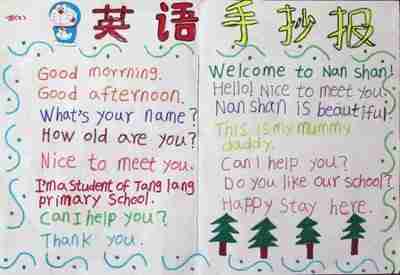 英语 手抄报
Good morrning.
Good afternoon.
What's your name?
How old are you?
Nice to meet you.
I'm a student of Tang lang
primary School.
Can I help you?
Thank you.
Welcome to Nan shan!
Hello! Nice to meet you.
Nan shan is beautiful.
This is my mummy
daddy.
Can I help you?
Do you like our school?
Happy Stay here.